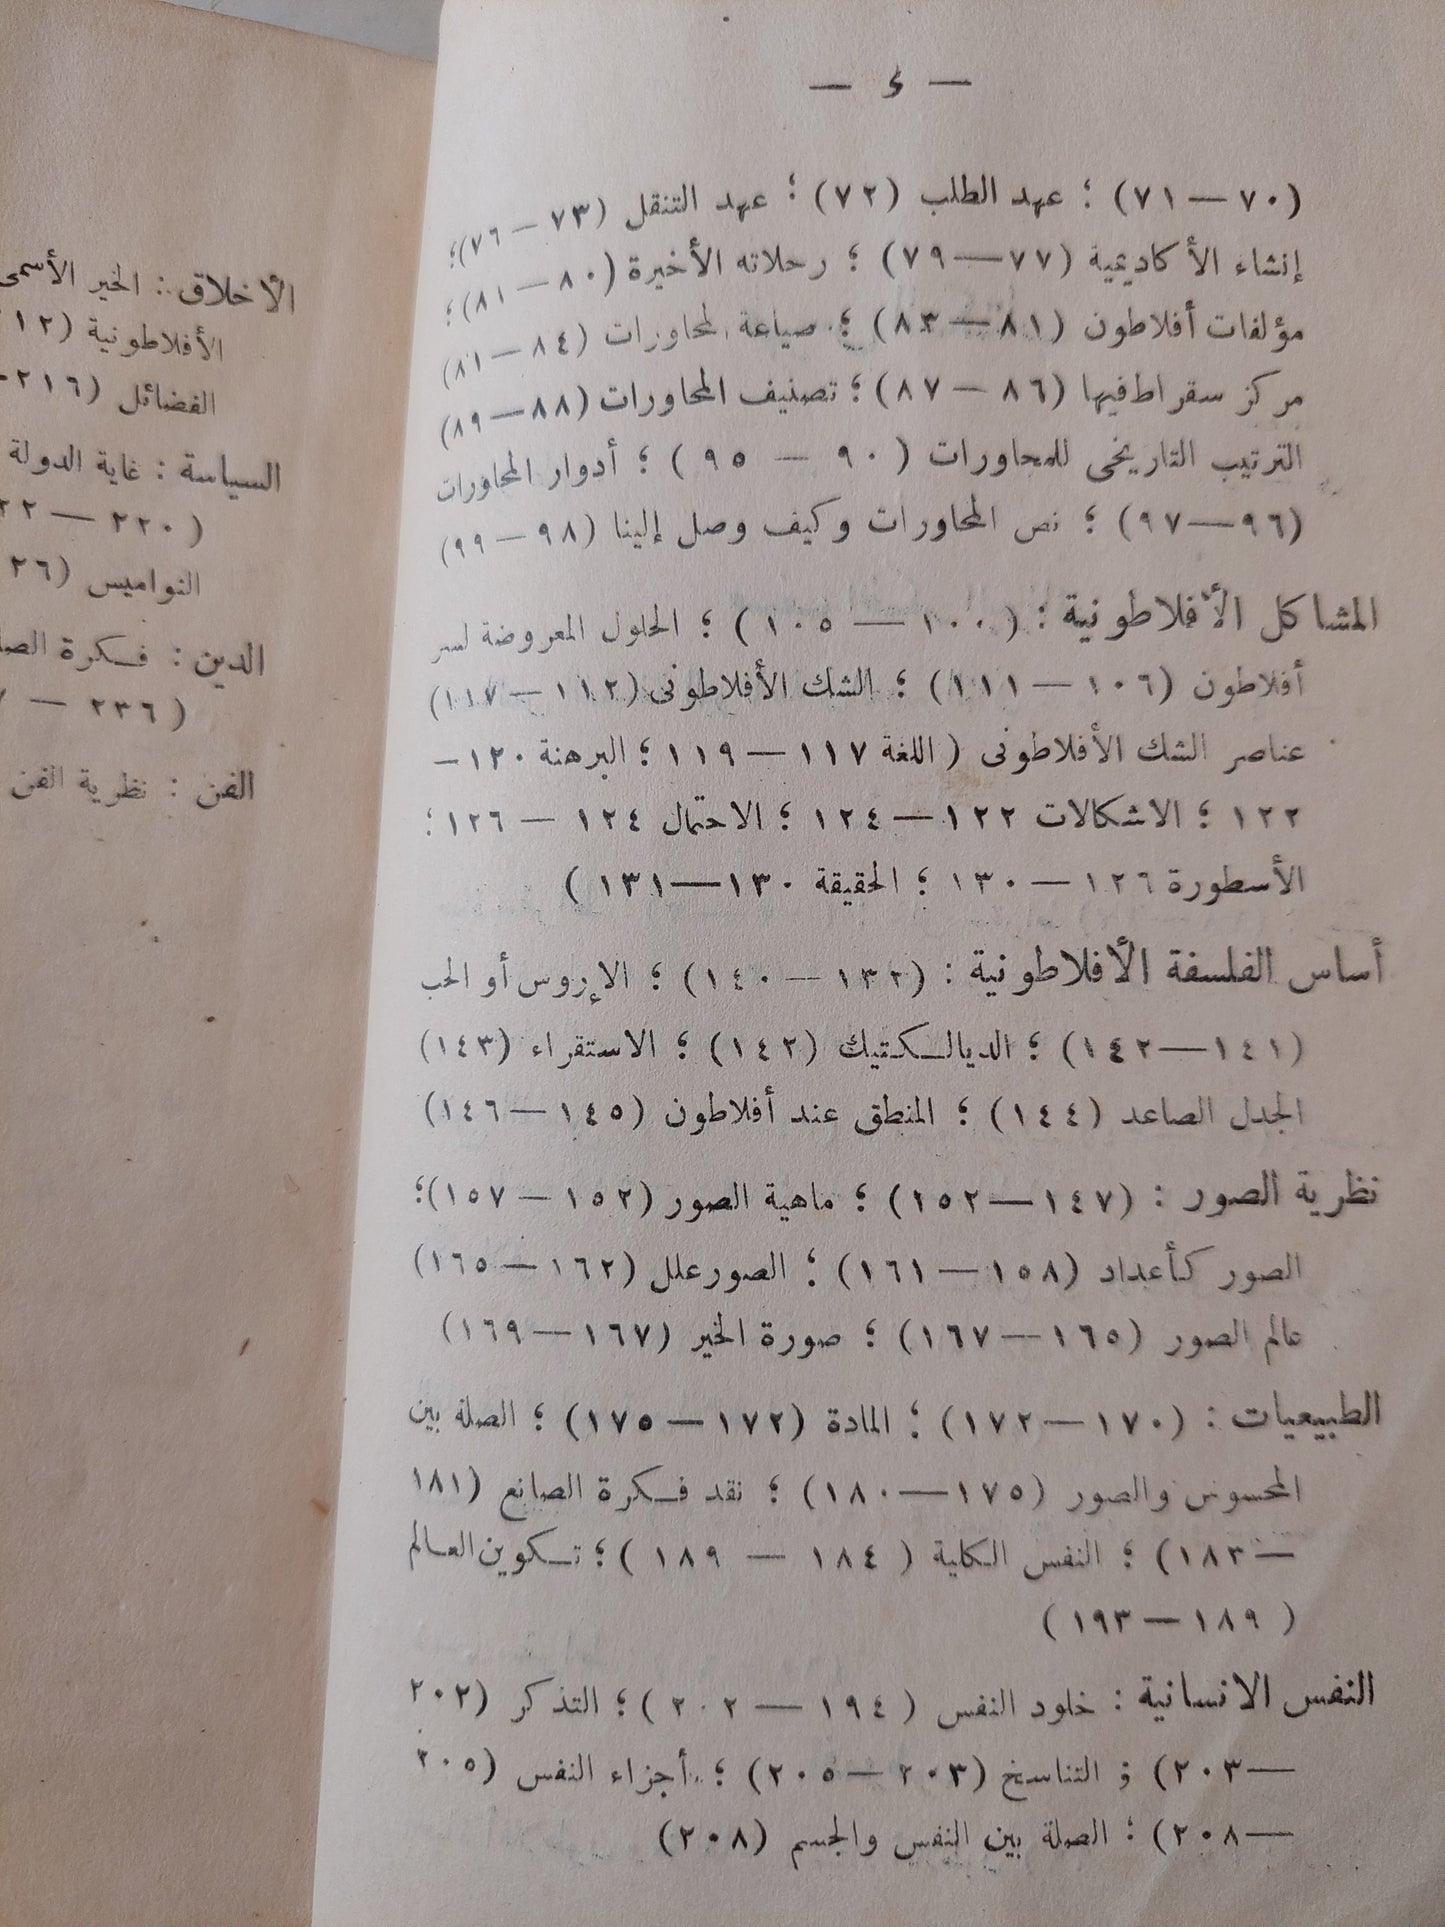 — ى —
(٧٠ — ٧١) ؛ عهد الطلب (٧٢) ؛ عهد التنقل (٧٣ — ٧٦)؛
إنشاء الأكاديمية (٧٧ — ٧٩) ؛ رحلاته الأخيرة (٨٠ — ٨١)؛
مؤلفات أفلاطون (٨١ — ٨٣) ؛ صياغة المحاورات (٨٤ — ٨١)
مركز سقراط فيها (٨٦ — ٨٧) ؛ تصنيف المحاورات (٨٨ — ٨٩)
الترتيب التاريخى للمحاورات (٩٠ — ٩٥) ؛ أدوار المحاورات
(٩٦ — ٩٧) ؛ نص المحاورات وكيف وصل إلينا (٩٨ — ٩٩)
المشاكل الأفلاطونية : (١٠٠ — ١٠٥) ؛ الحلول المعروضة لسر
أفلاطون (١٠٦ — ١١١) ؛ الشك الأفلاطونى (١١٢ — ١١٧)
عناصر الشك الأفلاطونى (اللغة ١١٧ — ١١٩ ؛ البرهنة ١٢٠ —
١٢٢ ؛ الاشكالات ١٢٢ — ١٢٤ ؛ الاحتمال ١٢٤ — ١٢٦ ؛
الأسطورة ١٢٦ — ١٣٠ ؛ الحقيقة ١٣٠ — ١٣١)
أساس الفلسفة الأفلاطونية : (١٣٢ — ١٤٠) ؛ الإروس أو الحب
(١٤١ — ١٤٢) ؛ الديالكتيك (١٤٢) ؛ الاستقراء (١٤٣)
الجدل الصاعد (١٤٤) ؛ المنطق عند أفلاطون (١٤٥ — ١٤٦)
نظرية الصور : (١٤٧ — ١٥٢) ؛ ماهية الصور (١٥٢ — ١٥٧)؛
الصور كأعداد (١٥٨ — ١٦١) ؛ الصور علل (١٦٢ — ١٦٥)
عالم الصور (١٦٥ — ١٦٧) ؛ صورة الخير (١٦٧ — ١٦٩)
الطبيعيات : (١٧٠ — ١٧٢) ؛ المادة (١٧٢ — ١٧٥) ؛ الصلة بين
المحسوس والصور (١٧٥ — ١٨٠) ؛ نقد فكرة الصانع (١٨١
— ١٨٣) ؛ النفس الكلية (١٨٤ — ١٨٩) ؛ تكوين العالم
(١٨٩ — ١٩٣)
النفس الانسانية : خلود النفس (١٩٤ — ٢٠٢) ؛ التذكر (٢٠٢
— ٢٠٣) ؛ التناسخ (٢٠٣ — ٢٠٥) ؛ أجزاء النفس (٢٠٥
— ٢٠٨) ؛ الصلة بين النفس والجسم (٢٠٨)
الأخلاق : الخير الأسمى
الأفلاطونية (٢١٢
الفضائل (٢١٦ —
السياسة : غاية الدولة
(٢٢٠ — ٢٢
النواميس (٢٦
الدين : فكرة
(٢٣٦ —
الفن : نظرية الفن